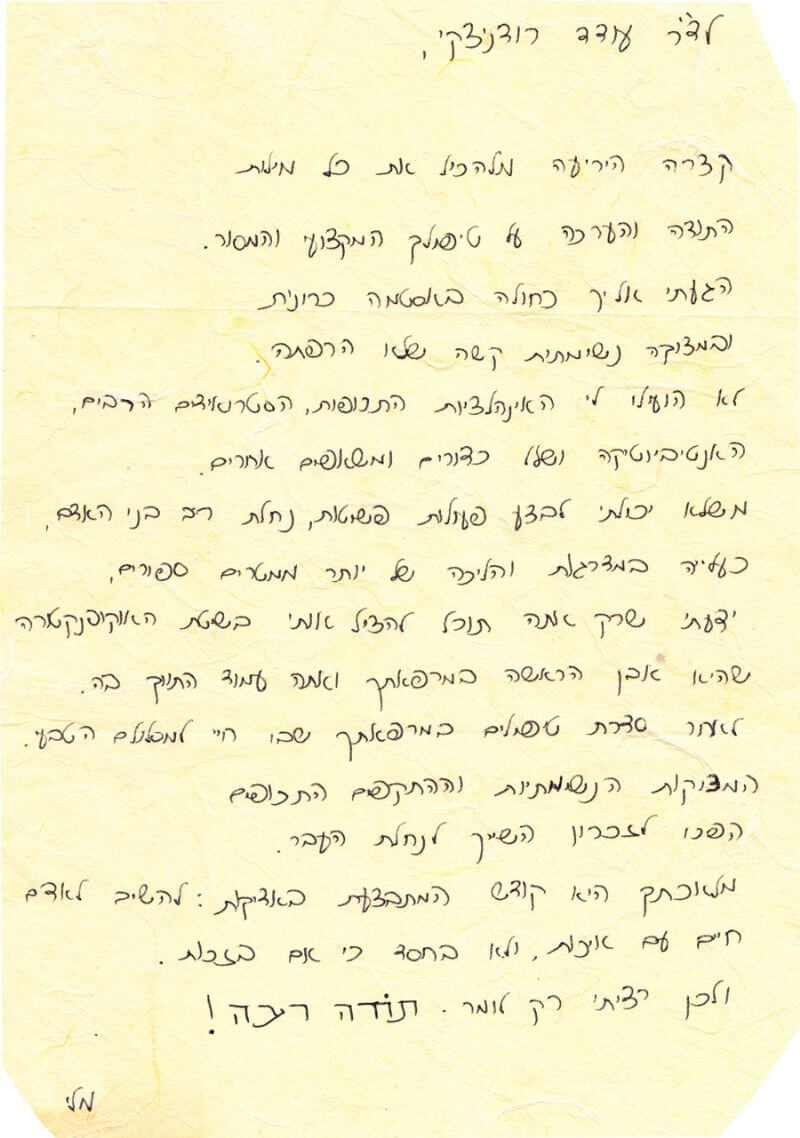 לד"ר עודד רודניצקי,
קצרה היריעה מלהכיל את כל מילות
התודה והערכה על טיפולך המקצועי והמסור.
הגעתי אליך כחולה באסטמה כרונית
ובמצוקה נשימתית קשה שלא הרפתה.
לא הועילו לי האינהלציות התכופות, הסטרואידים הרבים,
האנטיביוטיקה ושלל כדורים ומשאפים אחרים.
משלא יכולתי לבצע פעולות פשוטות, נחלת רוב בני האדם,
כעלייה במדרגות והליכה של יותר ממטרים ספורים,
ידעתי שרק אתה תוכל להציל אותי בשיטת האקופונקטורה
שהיא אבן הראשה במרפאתך ואתה עמוד התווך בה.
לאור סדרת טיפולים במרפאתך שבו חיי למסלולם הטבעי.
המצוקות הנשימתיות וההתקפים התכופים
הפכו לזכרון השייך לנחלת העבר.
מלאכתך היא קודש המתבצעת באדיקות: להשיב לאדם
חיים עם איכות, ולא בחסד כי אם בזכות.
ולכן רציתי רק לומר. תודה רבה!
מלי